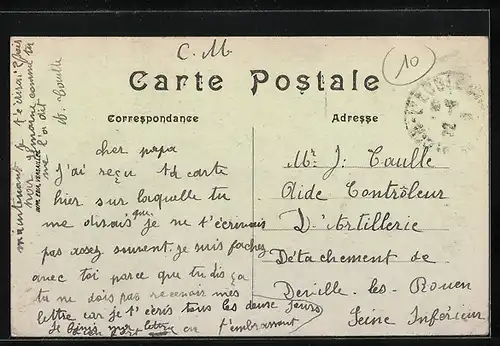 C. M.
10
Carte Postale
Correspondance
Adresse
cher papa
j'ai reçu ta carte
hier sur laquelle tu
me disais que je ne t'écrivais
pas assez souvent. je suis fachez
avec toi parce que tu dis ça
tu ne dois pas recevoir mes
lettre car je t'écris tous les deux jours
Je finis ma lettre en t'embrassant
maintenant je t'écrirai
noir
comme tu
me l'a dit
Mr J. Caulle
Aide Contrôleur
D'Artillerie
Détachement de
Deville-les-Rouen
Seine Inférieur